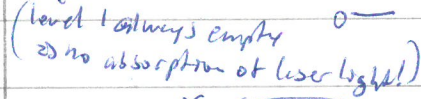 (level 1 always empty 0 —
⇒ no absorption of laser light!)